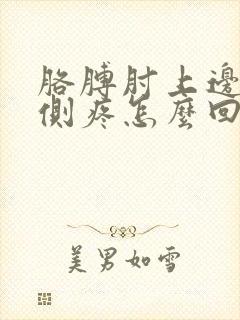 胳膊肘上邊
側疼怎麼回
美男如雪